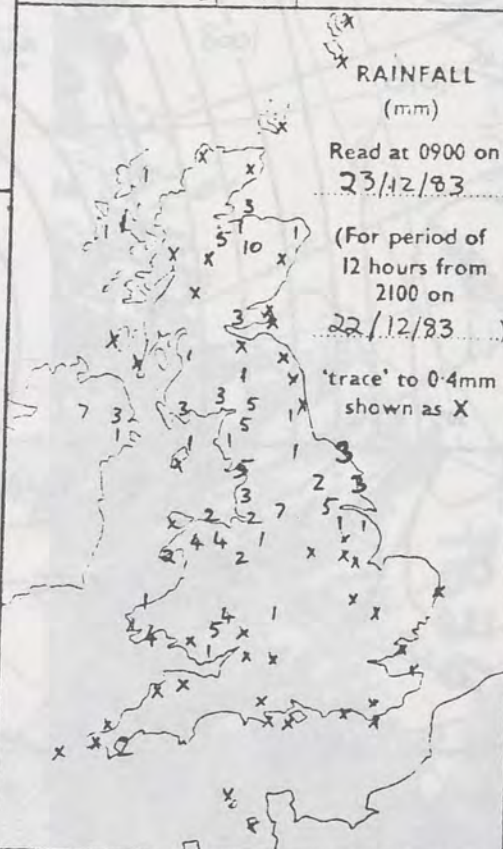 RAINFALL
(mm)
Read at 0900 on
23/12/83
(For period of
12 hours from
2100 on
22/12/83 )
'trace' to 0·4mm
shown as X
X
X
X
X
X
1
3
1 1 5 1 1
10
X X X
X
3 X
X
X X
X 1 X
1 X
7 3 3 3 5 X
1 5 1
1 1
X 5 1 3
3 2 3
X 2 2 7 5
4 4 1 1 1
2 2 X X
X X
1 4 1 X X X
X 4 5 X
X 1
X X X
X
X X X X
X X X X
X X 2
X